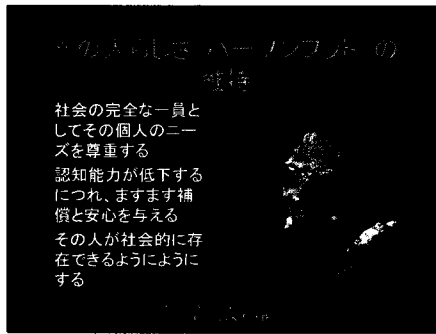 その人らしさ"パーソンフッド"の
維持
社会の完全な一員と
してその個人のニー
ズを尊重する
認知能力が低下する
につれ、ますます補
償と安心を与える
その人が社会的に存
在できるようにように
する